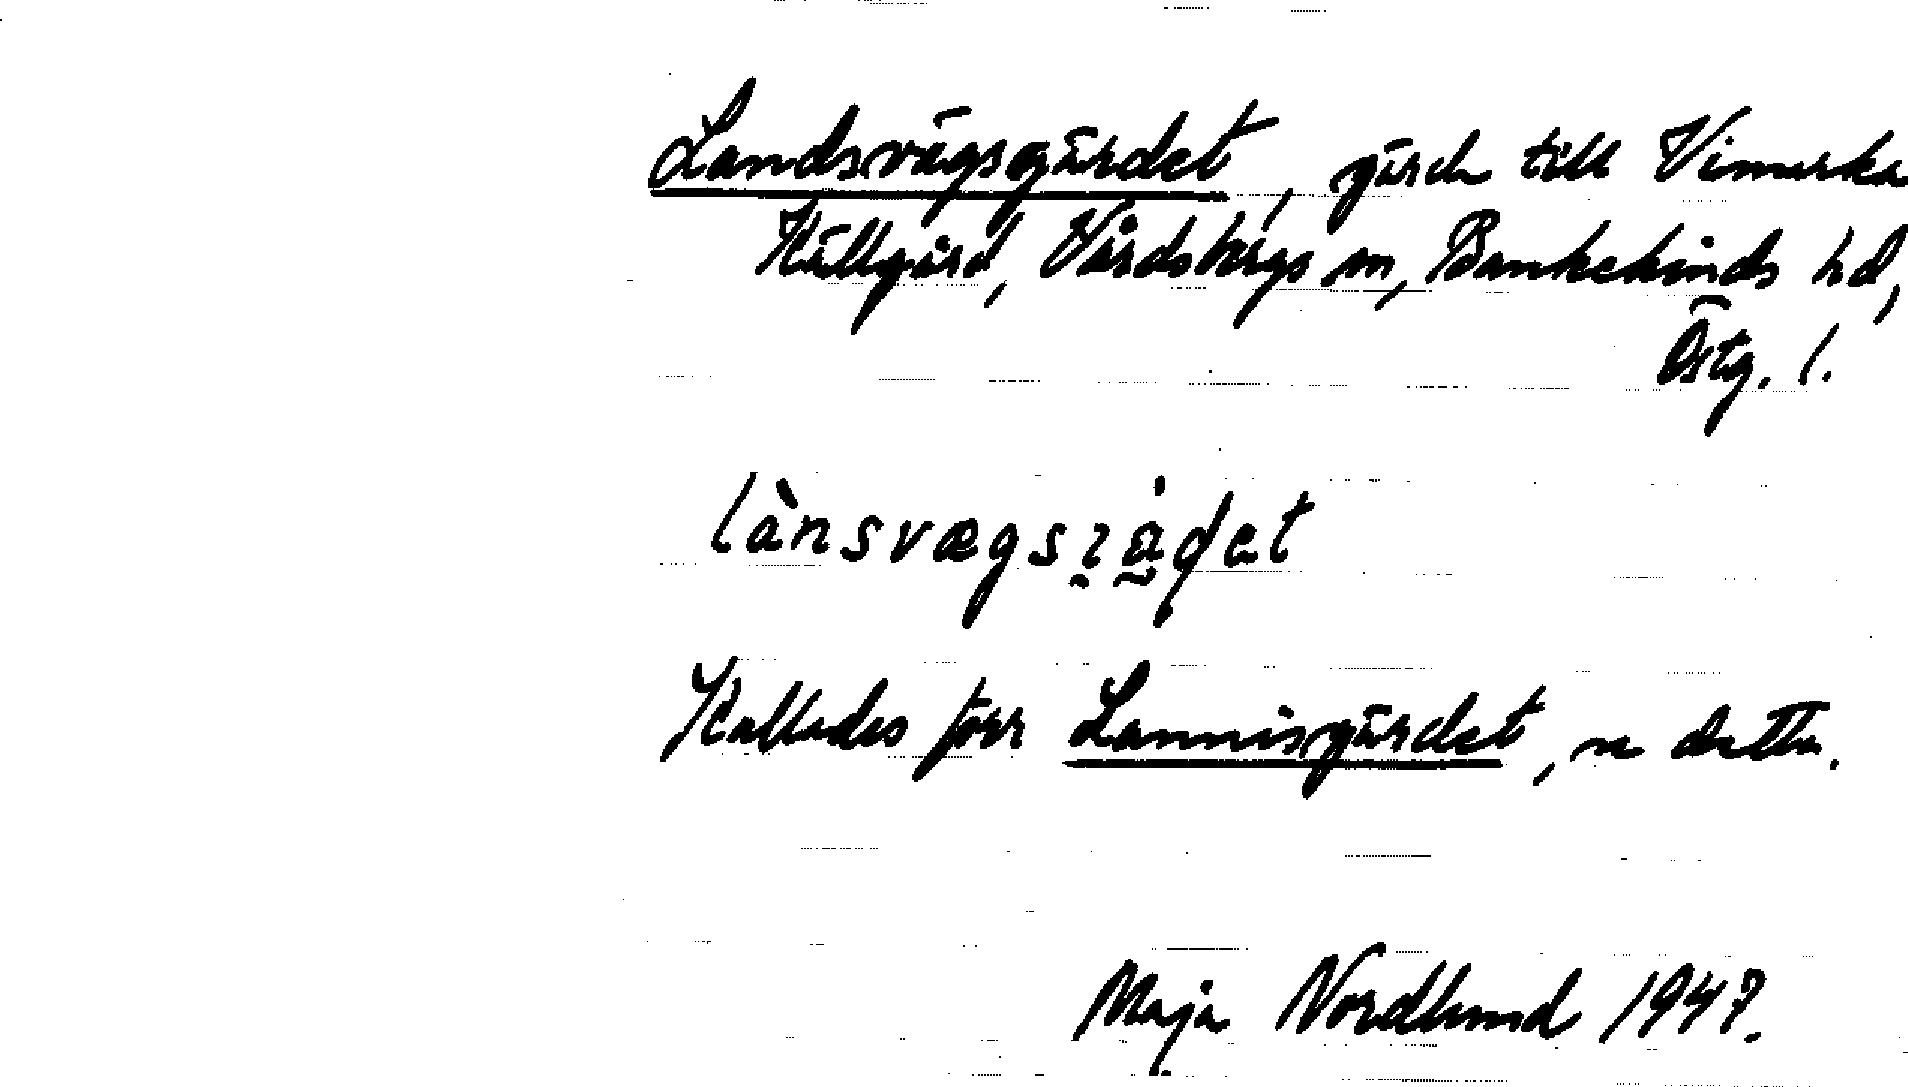 Landsvägsgärdet, gärde till Vimarka
Källgård, Vårdsbergs sn, Bankekinds hd,
Östg. l.
lànsvægsɿådet
Kallades förr Lannisgärdet, se detta.
Maja Nordlund 1947.